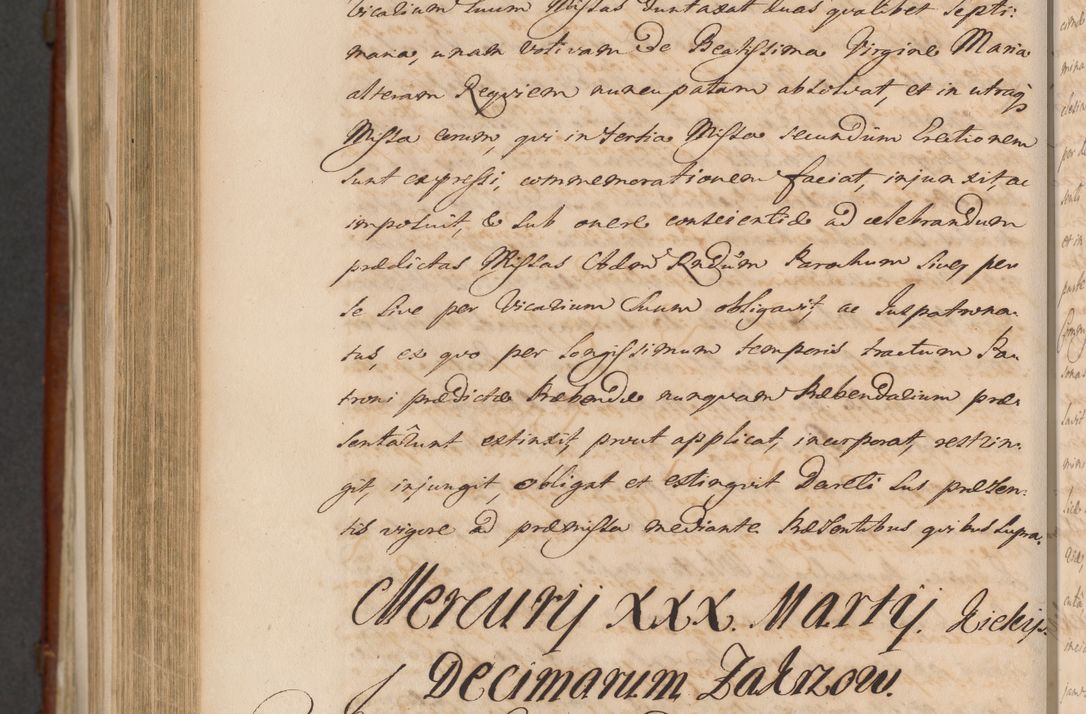 vicarium suum Missas duntaxat duas qualibet septi-
mana, unam votivam de Beatissima Virgine Maria
alteram Requiem nuncupatam absolvat, et in utraq
Missa eorum, qui in tertia Missa secundum Erectionem
sunt expressi, commemorationem faciat, injunxit, ac
imposuit, & sub onere conscientiæ ad celebrandum
prædictas Missas Rndum Parochum sive per
se sive per Vicarium suum obligavit ac Juspatrona-
tus, ex quo per longissimum temporis tractum Pa-
troni prædictæ Præbendæ nunquam Præbendarium præ-
sentarunt extinxit, prout applicat, incorporat, restrin-
git, injungit, obligat et extingvit Dareti sui præsen-
tis vigore ad præmissa mediante Præsentibus quibus supra.
Mercurij XXX. Martij. Kielcijs
Decimarum Zakrzow.